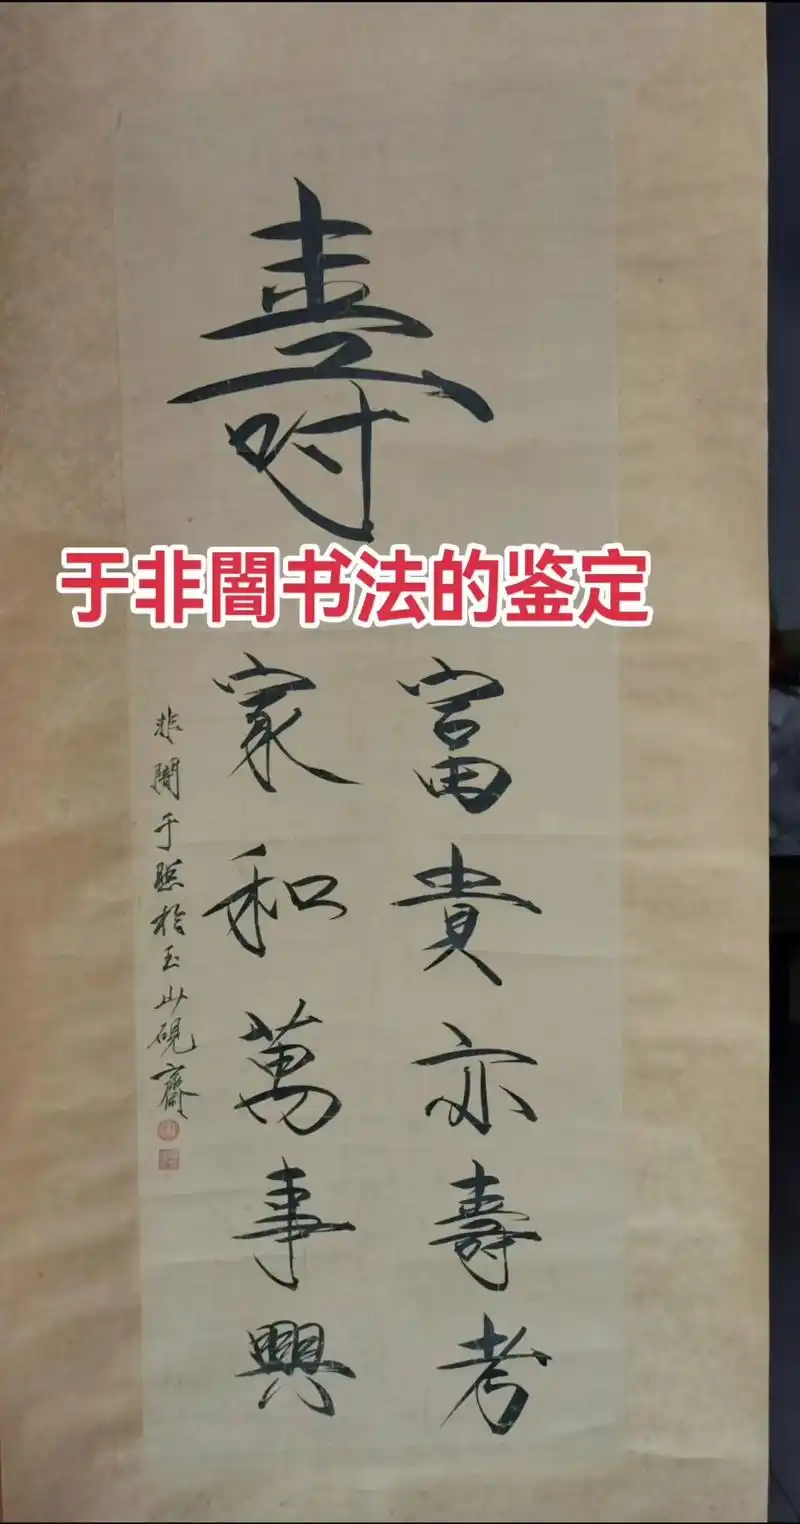 壽
于非闇书法的鉴定
富貴亦壽考
家和萬事興
非闇于照於玉山硯齋